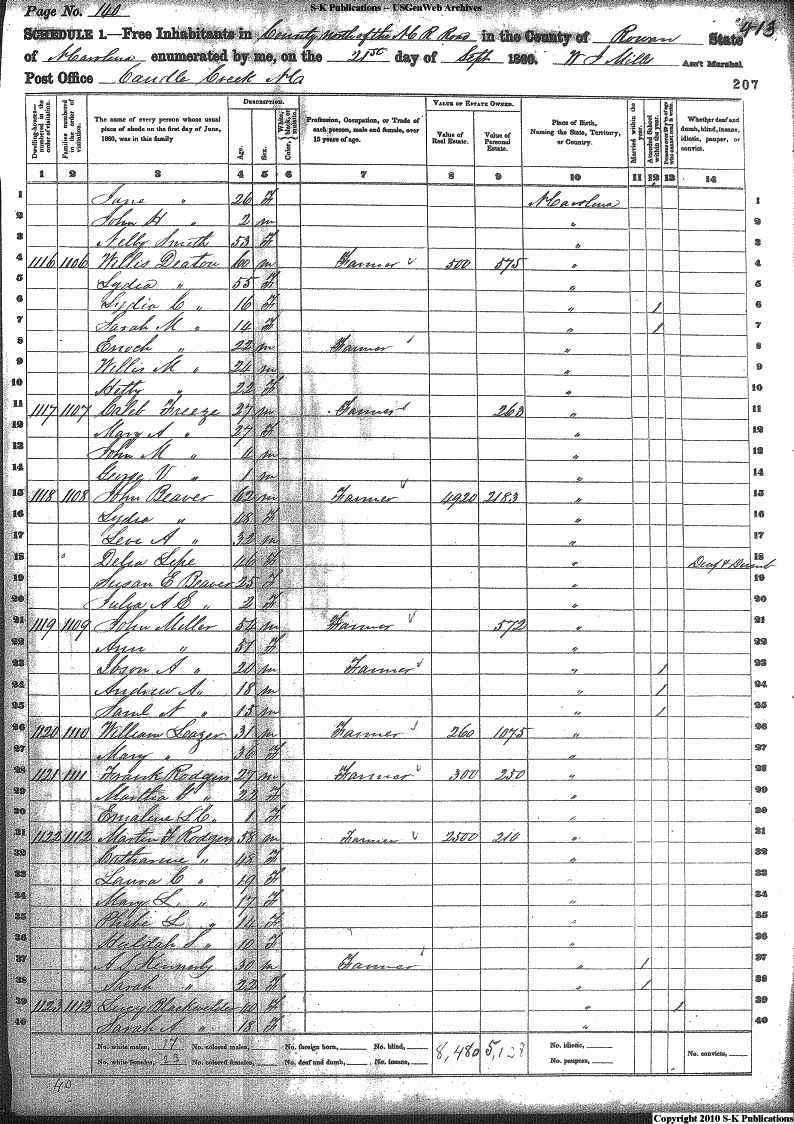 S-K Publications -- USGenWeb Archives
Page No. 140
413
SCHEDULE 1.—Free Inhabitants in County north of the N C R Road in the County of Rowan State
of N Carolina enumerated by me, on the 21st day of Sept 1860. W J Mills Ass't Marshal
Post Office Caudle Creek N C
207
Dwelling-houses—numbered in the order of visitation.
Families numbered in the order of visitation.
The name of every person whose usual place of abode on the first day of June, 1860, was in this family
DESCRIPTION.
Age.
Sex.
Color, White, black, or mulatto.
Profession, Occupation, or Trade of each person, male and female, over 15 years of age.
VALUE OF ESTATE OWNED.
Value of Real Estate.
Value of Personal Estate.
Place of Birth, Naming the State, Territory, or Country.
Married within the year.
Attended School within the year.
Whether deaf and dumb, blind, insane, idiotic, pauper, or convict.
1 2 3 4 5 6 7 8 9 10 11 12 13 14
1 Jane " 26 F N Carolina 1
2 John H " 2 m " 2
3 Nelly Smith 53 F " 3
4 1116 1106 Willis Deaton 60 m Farmer 500 575 " 4
5 Lydia " 55 F " 5
6 Lydia C " 16 F " 1 6
7 Sarah M " 14 F " 1 7
8 Enoch " 22 m Farmer " 8
9 Willis M " 24 m " 9
10 Hetty " 22 F " 10
11 1117 1107 Caleb Freeze 27 m Farmer 263 " 11
12 Mary A " 27 F " 12
13 John M " 4 m " 13
14 George V " 1 m " 14
15 1118 1108 John Beaver 62 m Farmer 4920 2183 " 15
16 Lydia " 48 F " 16
17 Levi A " 32 m " 17
18 Delia Lipe 46 F " Deaf & Dumb 18
19 Susan E Beaver 25 F " 19
20 Julia A E " 2 F " 20
21 1119 1109 John Miller 54 m Farmer 572 " 21
22 Ann " 51 F " 22
23 Ibson A " 20 m Farmer " 1 23
24 Andrew A " 18 m " 1 24
25 Saml N " 15 m " 1 25
26 1120 1110 William Leazer 31 m Farmer 260 1075 " 26
27 Mary " 36 F " 27
28 1121 1111 Frank Rodgers 27 m Farmer 300 250 " 28
29 Martha " 22 F " 29
30 Emaline " 1 F " 30
31 1122 1112 Martin F Rodgers 58 m Farmer 2500 210 " 31
32 Catharine " 48 F " 32
33 Laura C " 19 F " 33
34 Mary L " 17 F " 34
35 Phebe L " 14 F " 35
36 Huldah S " 10 F " 36
37 A S Kennerly 30 m Farmer " 1 37
38 Sarah " 22 F " 1 38
39 1123 1113 Lucy Blackwelder F " 1 39
40 Sarah A " 18 F " 40
No. white males, 17 No. colored males, No. foreign born, No. blind, 8,480 5,128 No. idiotic,
No. white females, 23 No. colored females, No. deaf and dumb, No. insane, No. paupers, No. convicts,
40
Copyright 2010 S-K Publications